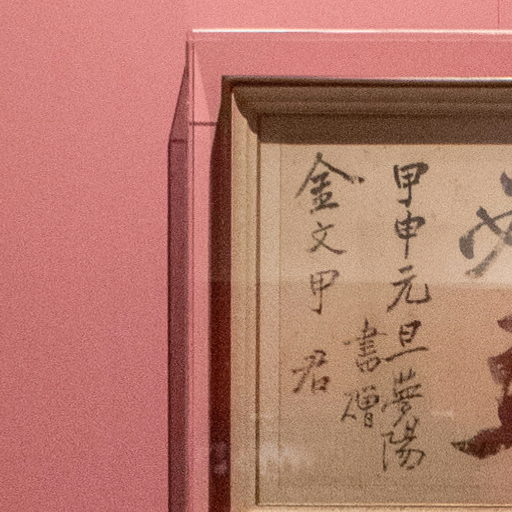 甲申元旦夢陽
書贈
金文甲君